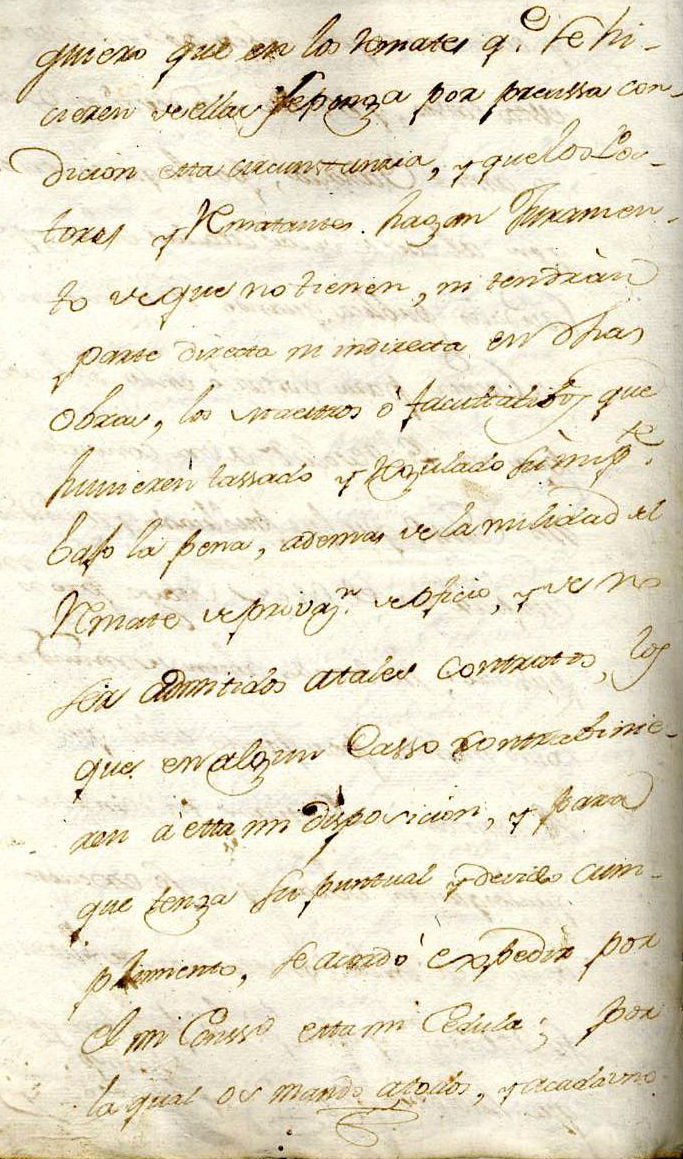 quiero que en los remates q.e se hi-
cieren de ellas se ponga por precissa con-
dicion esta circunstancia, y que los Pos-
tores y Rematantes hagan Juramen-
to de que no tienen, ni tendràn
parte directa ni indirecta en dhas
obras, los maestros ò facultativos que
huvieren tassado y Regulado su imp.te
bajo la pena, ademas de la nulidad del
Remate de privaz.n de oficio, y de no
ser admitidos a tales contratos, los
que en algun Casso contrabinie-
ren à esta mi disposicion, y para
que tenga su puntual y devido cum-
plimiento, se acordò expedir por
el mi Conss.o esta mi Cedula; por
la qual os mando a todos, y a cada uno